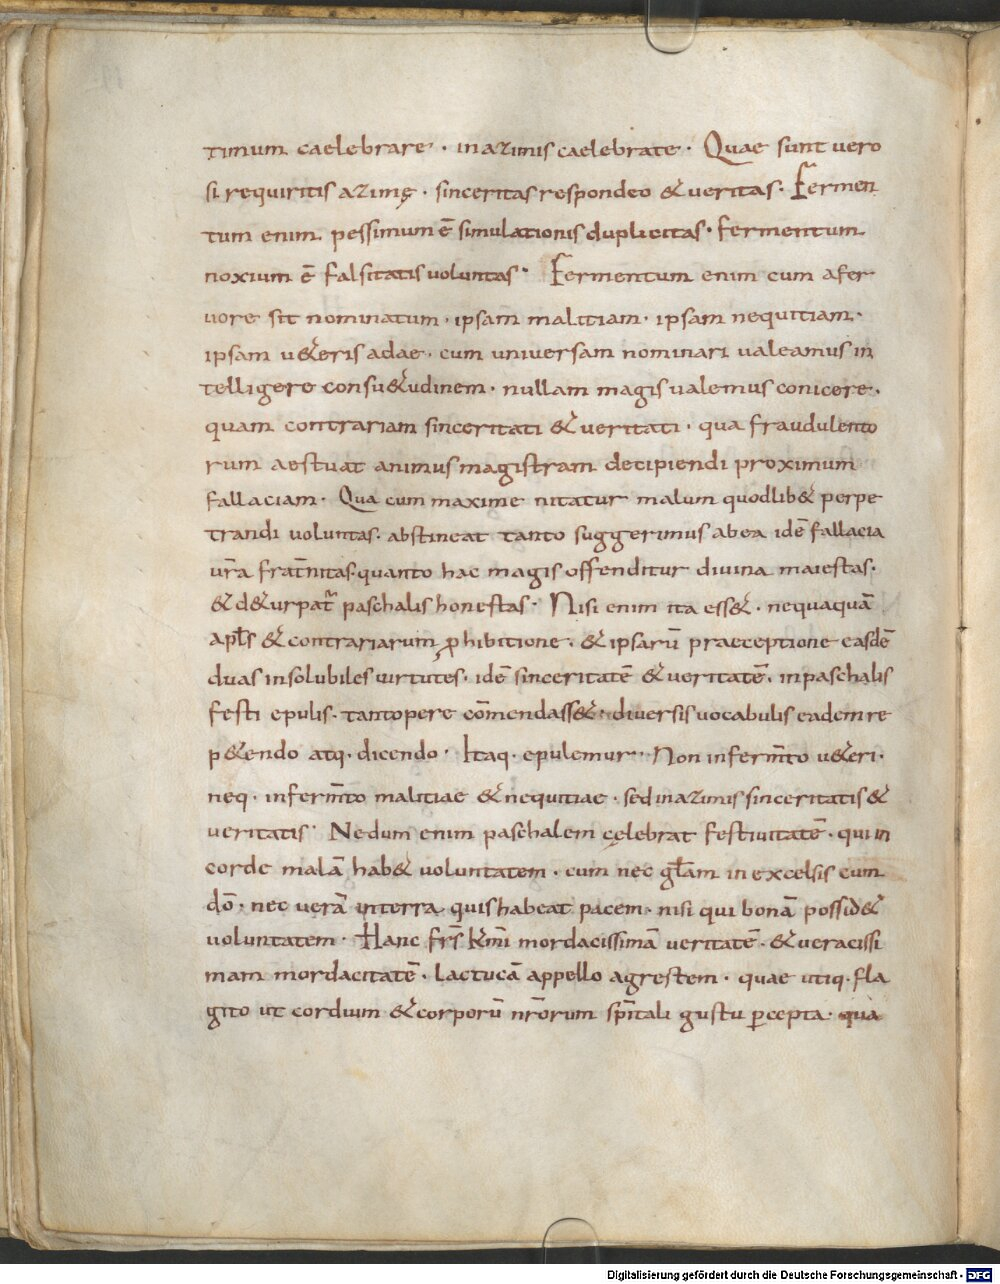 timum caelebrare · in azimis caelebrate · Quae sunt vero
si requiritis azimę · sinceritas respondeo & veritas · Fermen
tum enim pessimum ē simulationis duplicitas · fermentum
noxium ē falsitatis voluntas · Fermentum enim cum a fer
vore sit nominatum · ipsam malitiam · ipsam nequitiam ·
ipsam u&eris adae · cum universam nominari valeamus in
telligere consu&udinem · nullam magis valemus conicere ·
quam contrariam sinceritati & veritati · qua fraudulento
rum aestuat animus magistram decipiendi proximum
fallaciam · Qua cum maxime nitatur malum quodlib& perpe
trandi voluntas · abstineat tanto suggerimus ab ea idē fallacia
ur̄a frat̄nitas · quanto hac magis offenditur divina maiestas ·
& d&urpat̄ paschalis honestas · Nisi enim ita ess& · nequaquā
apl̄s & contrariarum ꝓhibitione · & ipsarū praeceptione easdē
duas insolubiles virtutes · idē sinceritatē & veritatē · in paschalis
festi epulis · tantopere com̄endass& · diversis vocabulis eadem re
p&endo atq · dicendo · Itaq · epulemur · Non in ferm̄to u&eri ·
neq · in ferm̄to malitiae & nequitiae · sed in azimis sinceritatis &
veritatis · Nedum enim paschalem cęlebrat festivitatē · qui in
corde malā hab& voluntatem · cum nec gl̄am in excelsis cum
dō · nec verā in terra quis habeat pacem · nisi qui bonā possid&
voluntatem · Hanc fr̄s km̄i mordacissimā veritatē · & veracissi
mam mordacitatē · lactucā appello agrestem · quae utiq · fla
gito ut cordium & corporū nr̄orum sp̄itali gustu ꝑcepta · qua